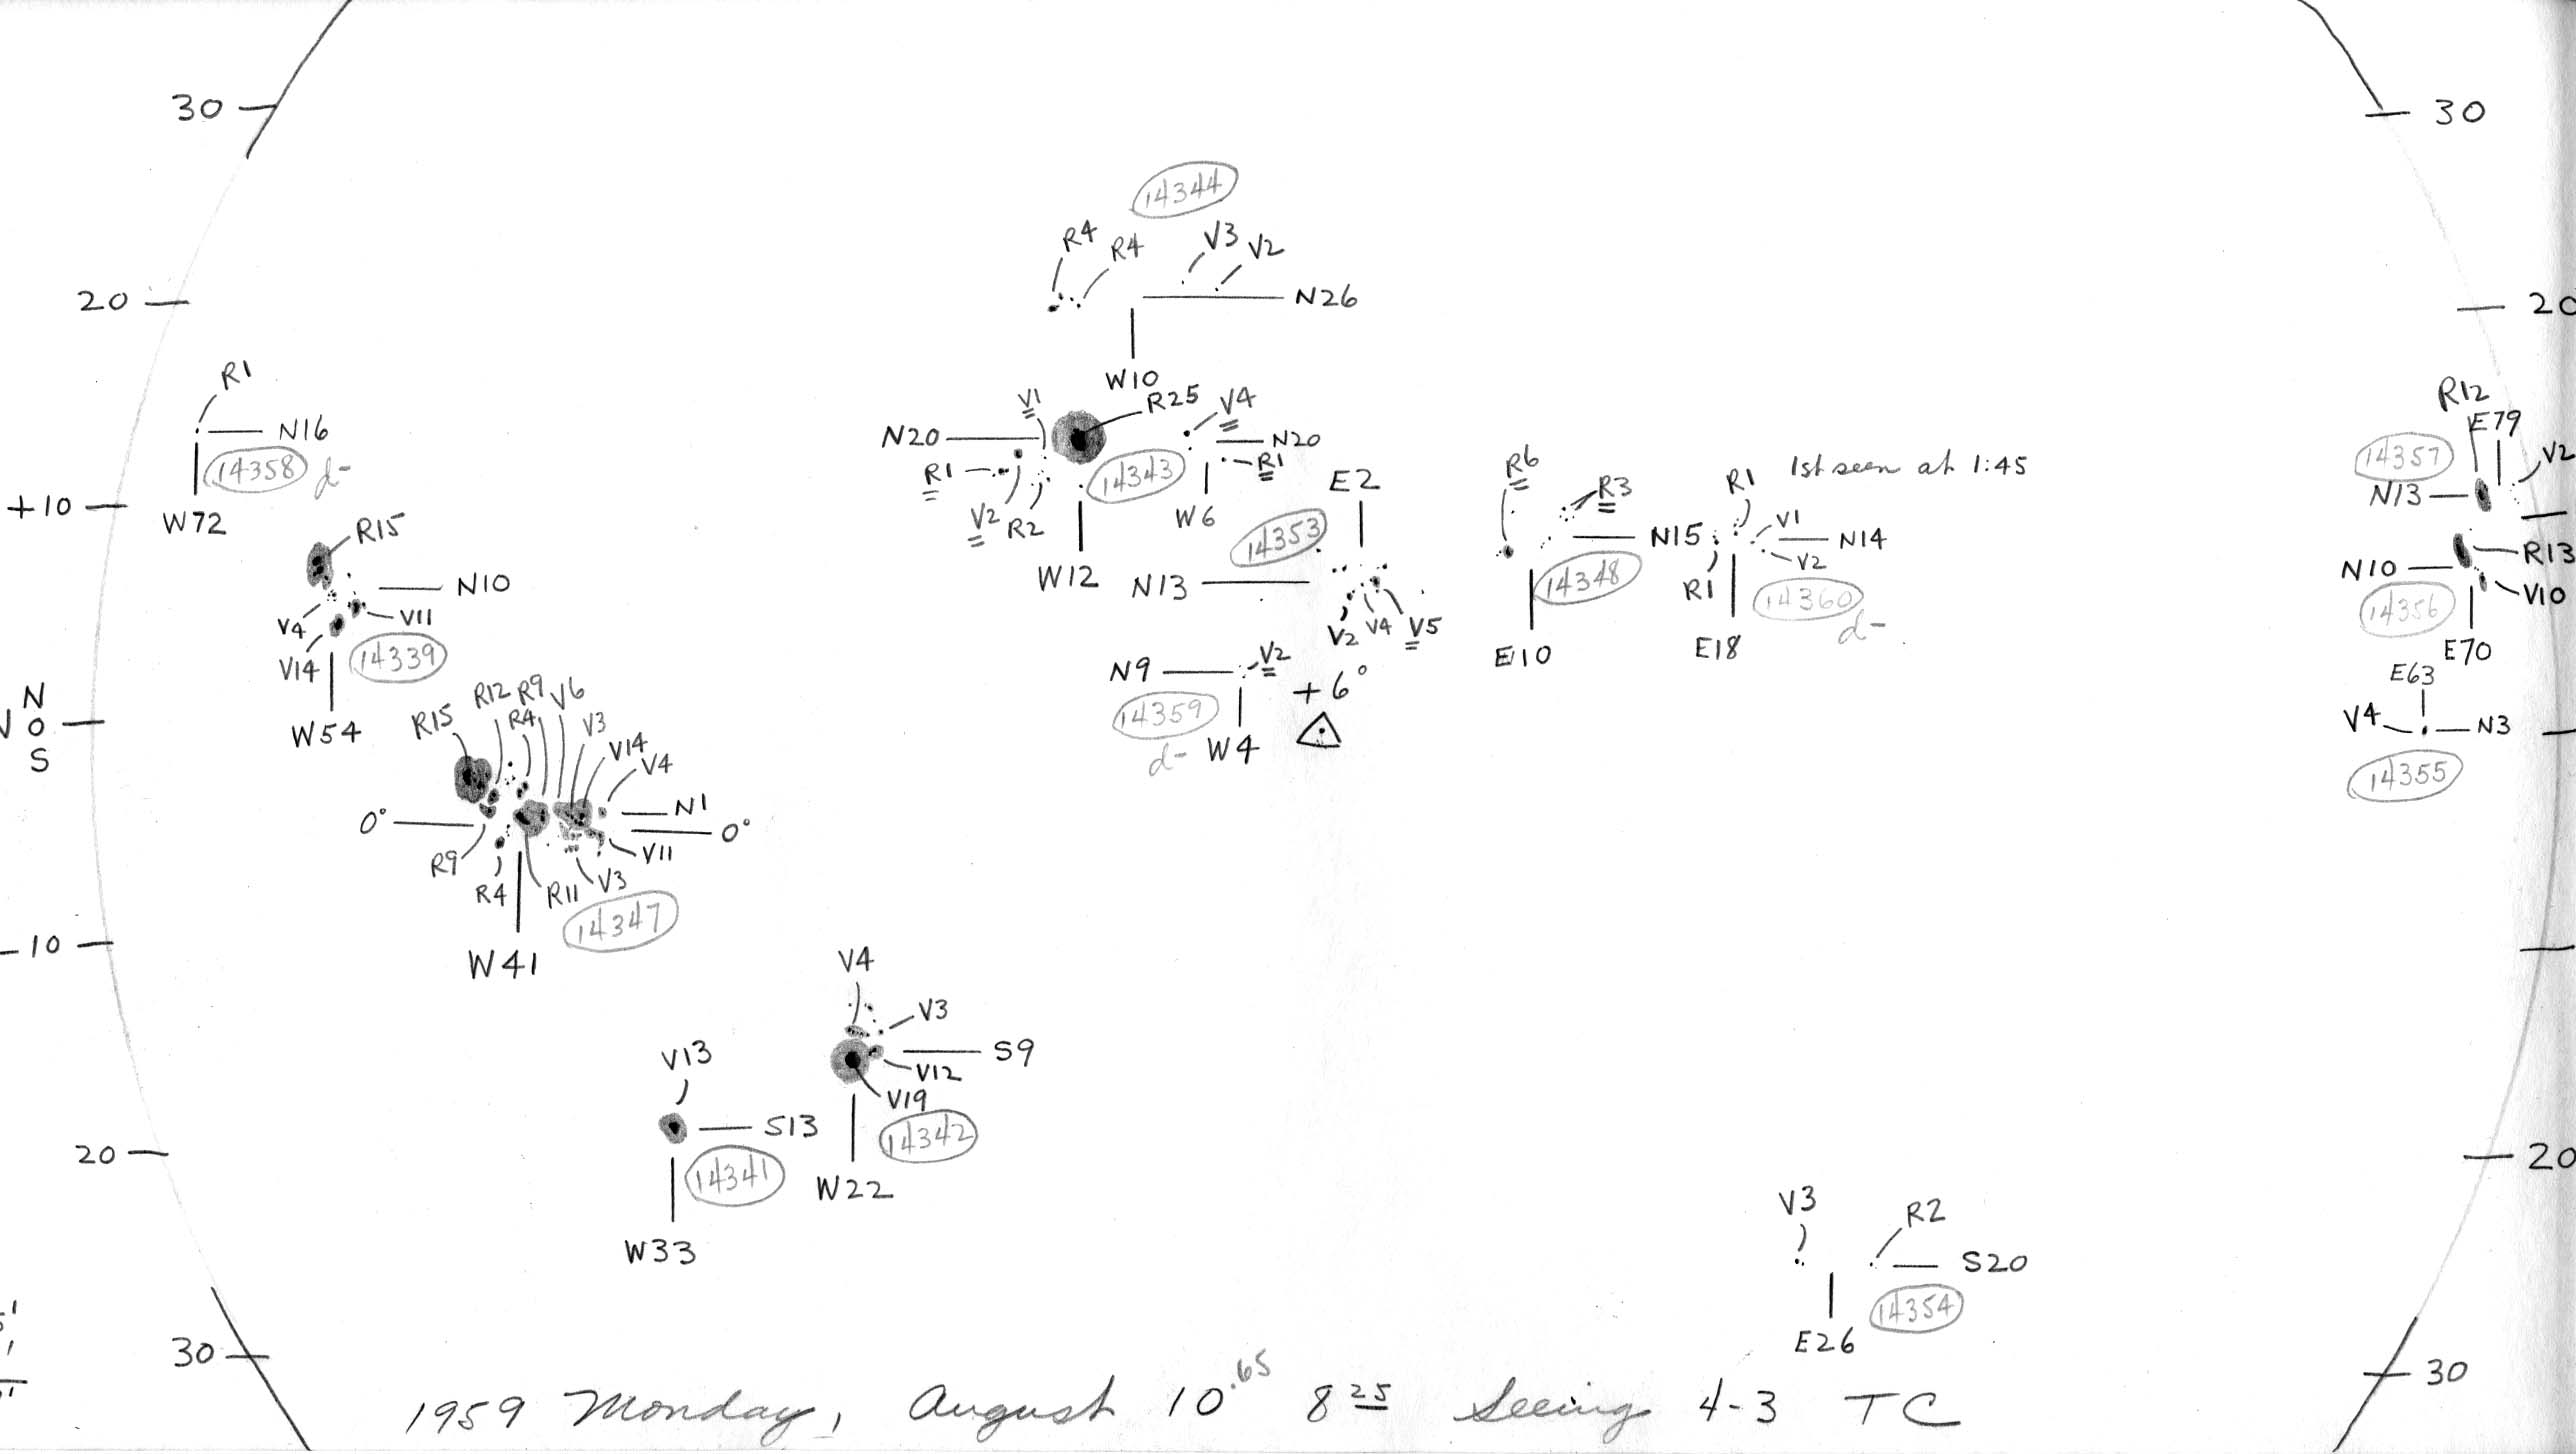 30
30
14344
R4
R4
V3
V2
20
N26
20
W10
R1
N16
14358
d-
W72
V1
R25
V4
N20
N20
R1
R1
14343
V2
R2
W6
W12
E2
14353
N13
V2
V4
V5
R6
R3
N15
14348
E10
R1
1st seen at 1:45
V1
N14
V2
R1
14360
d-
E18
R12
E79
14357
V2
N13
+10
R15
N10
V4
V11
V14
14339
W54
N10
R13
V10
14356
E70
N9
V2
+6°
14359
d-
W4
E63
V4
N3
14355
N
0
S
R12
R9
V6
R15
R4
V3
V14
V4
N1
0°
0°
R9
V11
R4
R11
V3
14347
W41
-10
V4
V3
S9
V12
V19
14342
W22
V13
S13
14341
W33
20
20
V3
R2
S20
14354
E26
30
30
1959 Monday, August 10.65 8 25 Seeing 4-3 TC